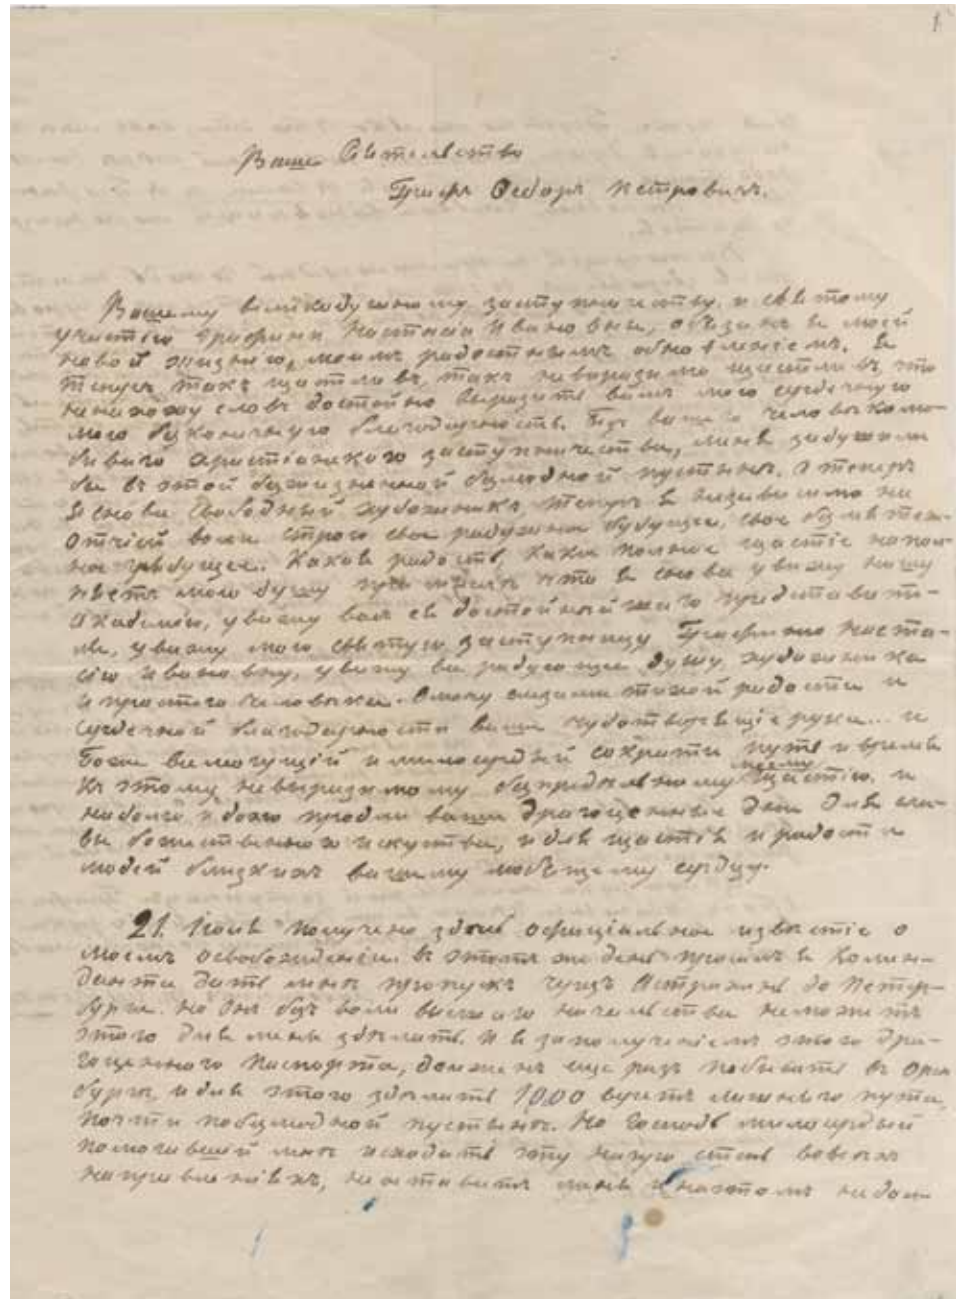 1
Ваше Сіятельство
Графъ Ѳедоръ Петровичъ.
Вашему великодушному заступничеству, и святому
участію графини Настасіи Ивановны, обязанъ я моей
новой жизнію, моимъ радостнымъ обновленіемъ. Я
теперь такъ щастливъ, такъ невыразимо щастливъ, что
ненахожу словъ достойно выразить вамъ мою сердечную
мою безконечную благодарность. Безъ вашего человеколю-
биваго христіанскаго заступничества, меня задушили
бы въ этой безжизненной безлюдной пустынѣ. А теперь
я снова свободный художникъ, теперь я независимо ни
отчіей воли строю свое радужное будущее, свое безмятеж-
ное грядущее. Какая радость, какое полное щастіе напол-
няетъ мою душу при мысли что я снова увижу нашу
Академію, увижу васъ ея достойнѣйшаго представите-
ля, увижу мою святую заступницу Графиню Наста-
сію Ивановну, увижу все радующее душу художника
и простого человѣка. Омочу слезами тихой радости и
сердечной благодарности ваши чудотворящіе руки... и
Боже всемогущій и милосердый сократи путь и время
къ этому невыразимому безпредѣльному моему щастію, и
надолго и долго продли ваши драгоценные дни для сла-
вы божественного искуства, и для щастія и радости
людей близкихъ вашему любящему сердцу.
21 Іюля получено здѣсь офиціальное извѣстіе о
моемъ освобожденіи. въ этотъ же день просилъ я Комен-
данта дать мнѣ пропускъ чрезъ Астрахань до Петер-
бурга. но онъ безъ воли высшаго начальства неможетъ
этого для меня здѣлать. И я за полученіемъ этого дра-
гоценного паспорта, долженъ еще разъ побывать въ Орен
бургѣ, и для этого здѣлать 1000 верстъ лишняго пути,
почти побезлюдной пустынѣ. Но Господь милосердый
помогавшій мнѣ исходить эту нагую степь вовсехъ
направленіяхъ, неоставитъ меня и на этомъ недол-